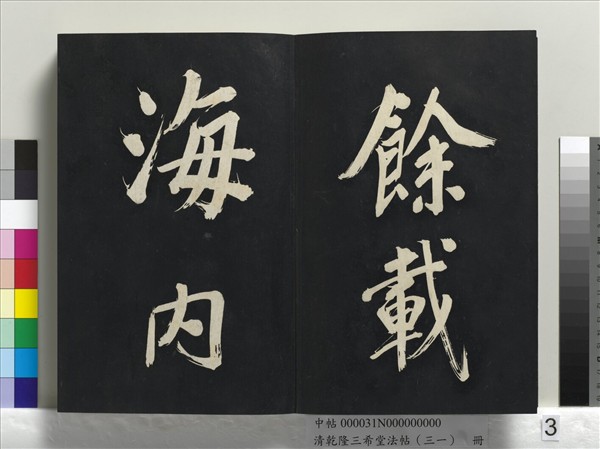 餘載
海內
中帖 000031N000000000
清乾隆三希堂法帖（三一） 冊
3